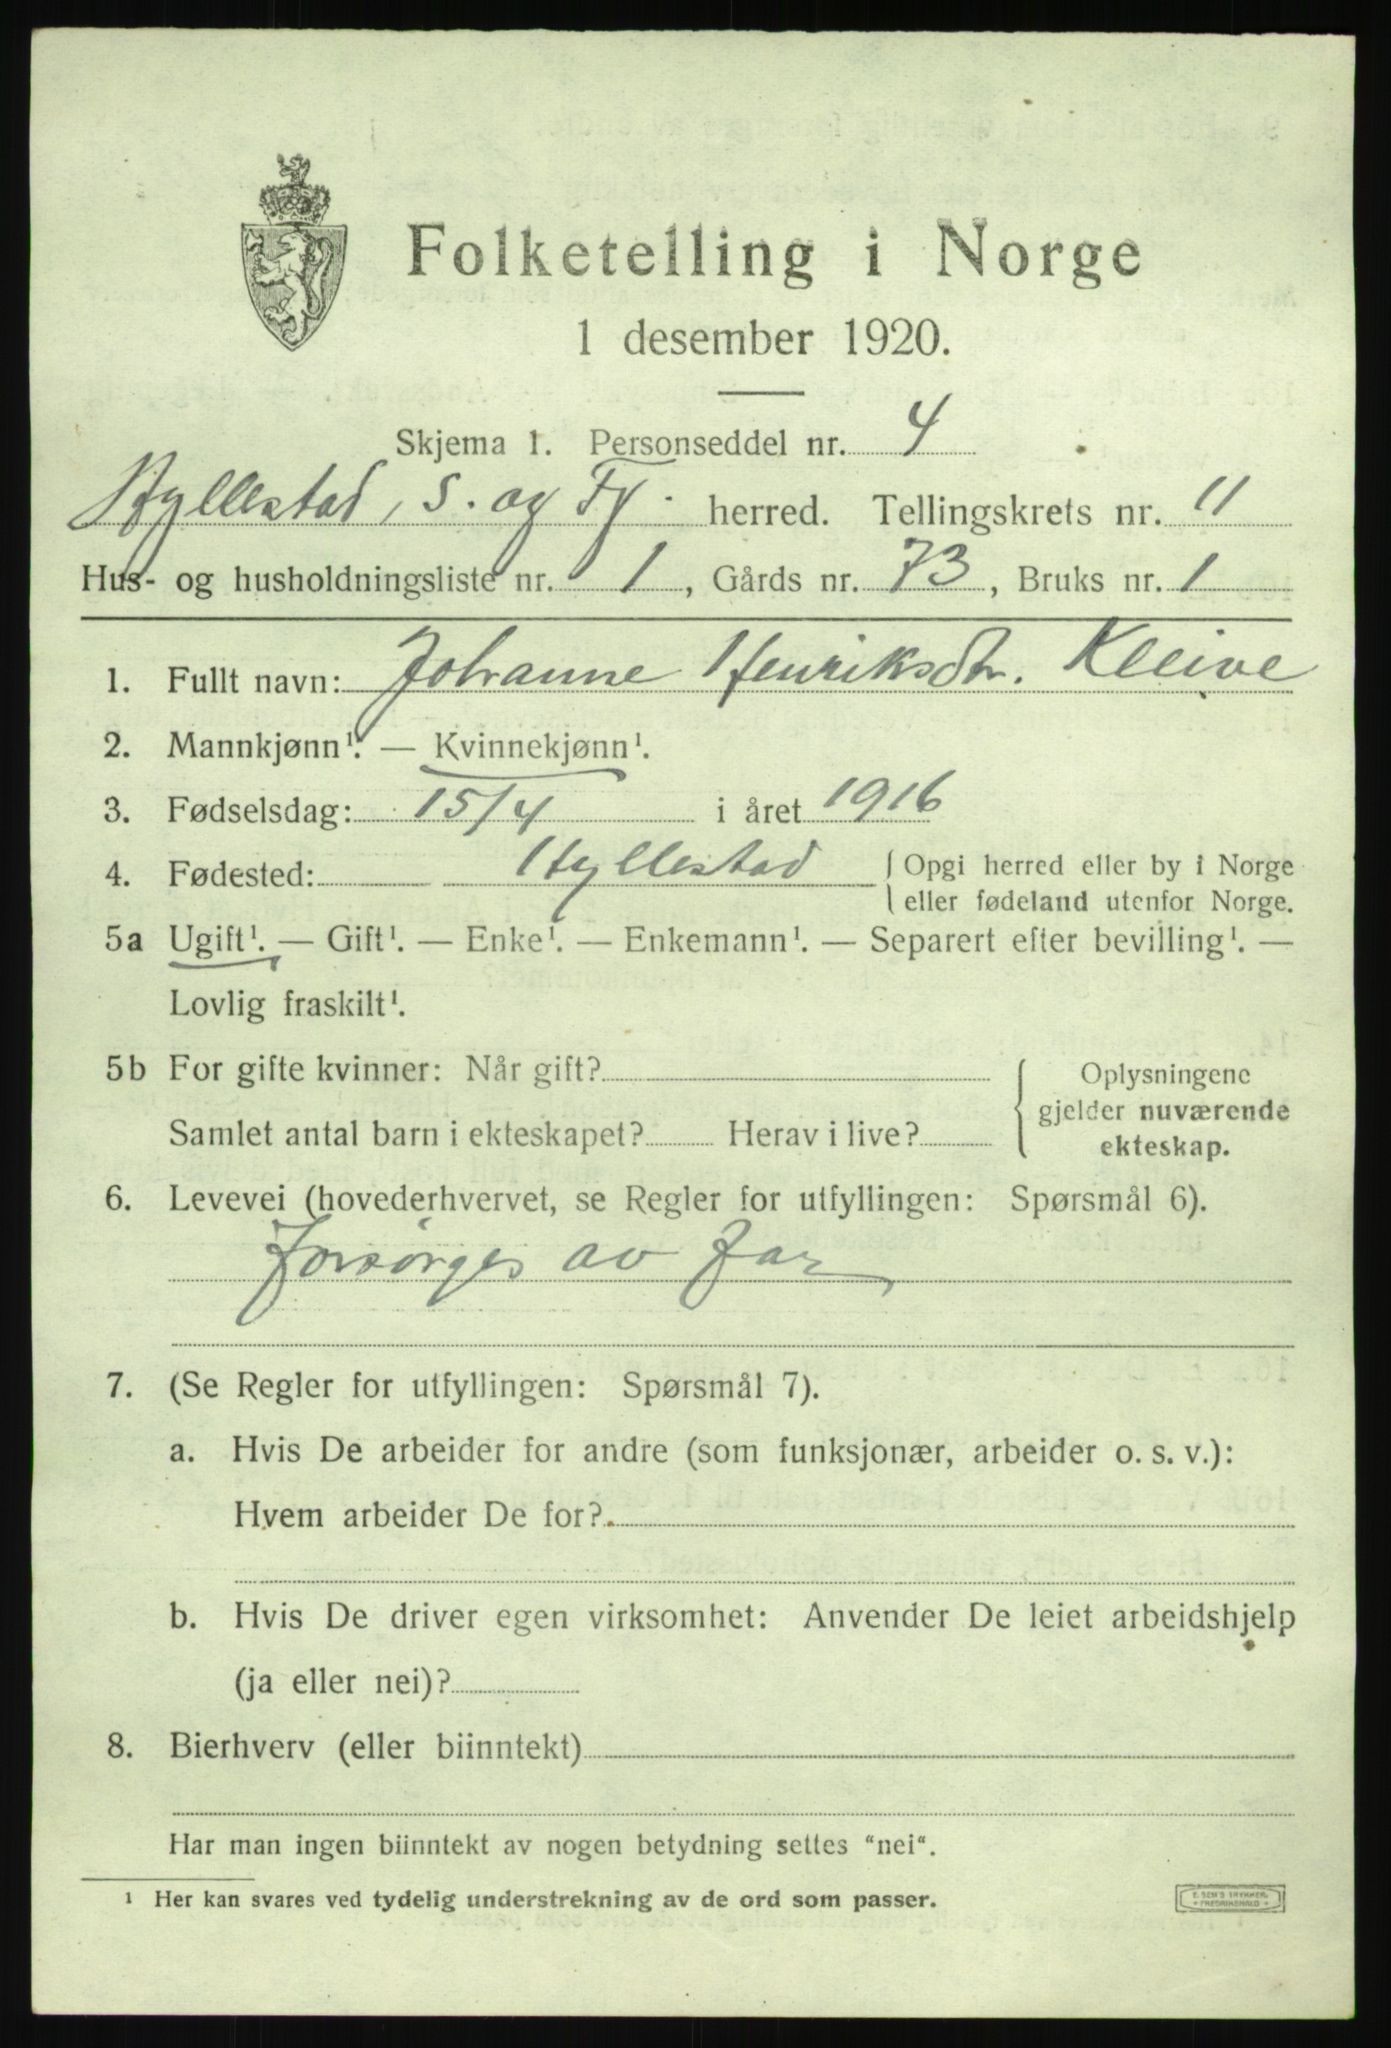 Folketelling i Norge
1 desember 1920.
Skjema 1. Personseddel nr. 4
Hyllestad, S. og Fj. herred. Tellingskrets nr. 11
Hus- og husholdningsliste nr. 1, Gårds nr. 73, Bruks nr. 1
1. Fullt navn: Johanne Henriksdtr. Kleive
2. Mannkjønn¹. — Kvinnekjønn¹.
3. Fødselsdag: 15/4 i året 1916
4. Fødested: Hyllestad { Opgi herred eller by i Norge
eller fødeland utenfor Norge.
5a Ugift¹. — Gift¹. — Enke¹. — Enkemann¹. — Separert efter bevilling¹. —
Lovlig fraskilt¹.
5b For gifte kvinner: Når gift?
Samlet antal barn i ekteskapet? Herav i live?
{ Oplysningene
gjelder nuværende
ekteskap.
6. Levevei (hovederhvervet, se Regler for utfyllingen: Spørsmål 6).
Forsørges av Far
7. (Se Regler for utfyllingen: Spørsmål 7).
a. Hvis De arbeider for andre (som funksjonær, arbeider o. s. v.):
Hvem arbeider De for?
b. Hvis De driver egen virksomhet: Anvender De leiet arbeidshjelp
(ja eller nei)?
8. Bierhverv (eller biinntekt)
Har man ingen biinntekt av nogen betydning settes "nei".
¹ Her kan svares ved tydelig understrekning av de ord som passer.
E. SEM'S TRYKKERI
FREDRIKSHALD